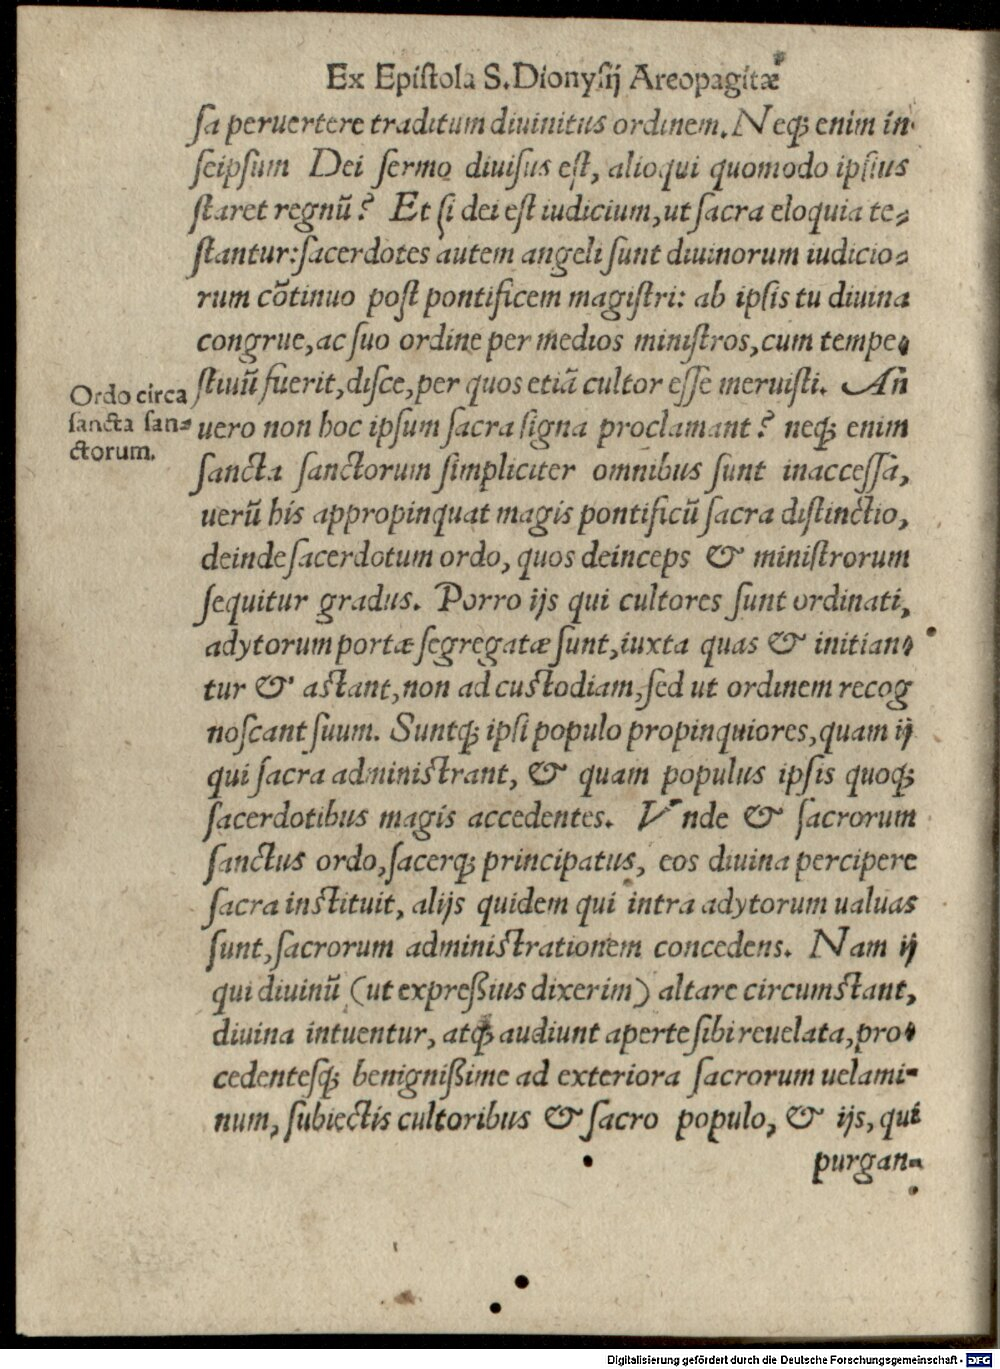 Ex Epistola S. Dionysij Areopagitæ
sa peruertere traditum diuinitus ordinem. Neq; enim in
seipsum Dei sermo diuisus est, alioqui quomodo ipsius
staret regnũ? Et si dei est iudicium, ut sacra eloquia te-
stantur: sacerdotes autem angeli sunt diuinorum iudicio-
rum cõtinuo post pontificem magistri: ab ipsis tu diuina
congrue, ac suo ordine per medios ministros, cum tempe-
stiuũ fuerit, disce, per quos etiã cultor esse meruisti. An
Ordo circa
sancta san-
ctorum.
uero non hoc ipsum sacra signa proclamant? neq; enim
sancta sanctorum simpliciter omnibus sunt inaccessa,
uerũ his appropinquat magis pontificũ sacra distinctio,
deinde sacerdotum ordo, quos deinceps & ministrorum
sequitur gradus. Porro ijs qui cultores sunt ordinati,
adytorum portæ segregatæ sunt, iuxta quas & initian-
tur & astant, non ad custodiam, sed ut ordinem recog
noscant suum. Suntq; ipsi populo propinquiores, quam ij
qui sacra administrant, & quam populus ipsis quoq;
sacerdotibus magis accedentes. Vnde & sacrorum
sanctus ordo, sacerq; principatus, eos diuina percipere
sacra instituit, alijs quidem qui intra adytorum ualuas
sunt, sacrorum administrationem concedens. Nam ij
qui diuinũ (ut expreßius dixerim) altare circumstant,
diuina intuentur, atq; audiunt aperte sibi reuelata, pro-
cedentesq; benignißime ad exteriora sacrorum uelami-
num, subiectis cultoribus & sacro populo, & ijs, qui
purgan-
Digitalisierung gefördert durch die Deutsche Forschungsgemeinschaft - DFG